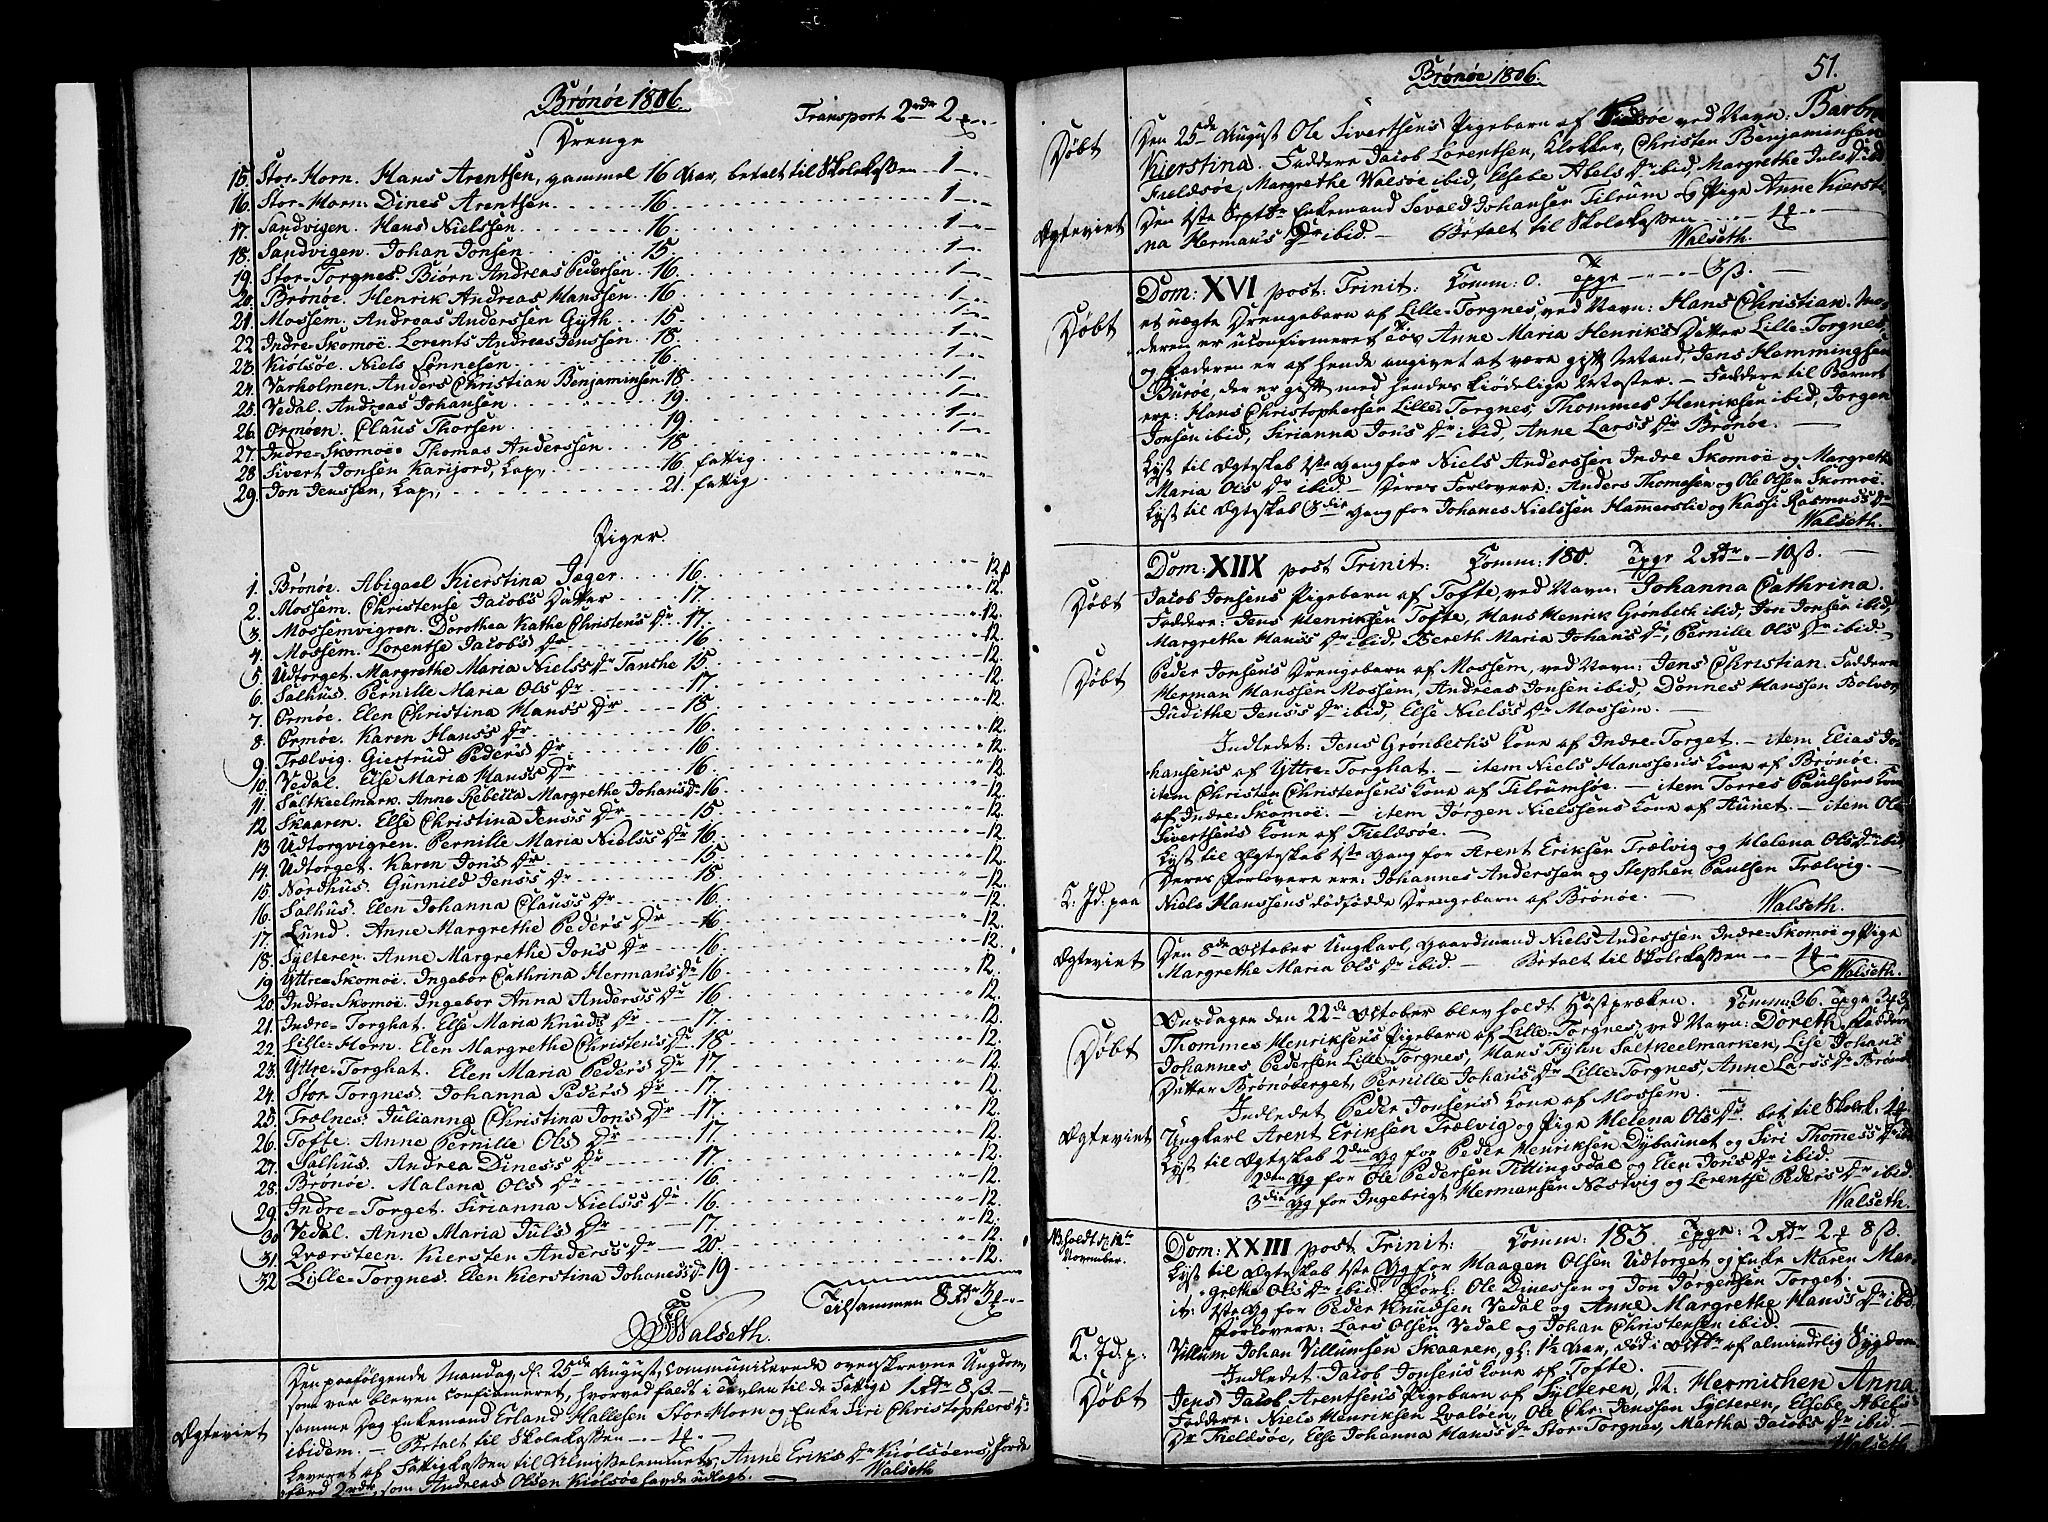 Brönöe 1806.
Transport 2rdr 2
Drenge
15. Stor-Horn. Hans Arentsen, gammel 16 Aar, betalt til Skolekassen 1
16. Stor-Horn. Dines Arentsen 16. 1
17. Sandvigen. Hans Nielssen 16. 1
18. Sandvigen. Johan Jonsen 15. 1
19. Stor-Torgnes. Biørn Andreas Pedersen 16. 1
20. Brönöe. Henrik Andreas Hanssen 16. 1
21. Mossem. Andreas Anderssen Gÿth 15. 1
22. Indre-Skomoe. Lorents Andreas Jenssen 18. 1
23. Kiölsöe. Niels Tönnesen 16. 1
24. Varholmen. Anders Christian Benjaminsen 18. 1
25. Vedal. Andreas Johansen 19. 1
26. Ormöen. Claus Thorsen 19. 1
27. Indre-Skomoe. Thomas Anderssen 18. 1
28. Sivert Jonsen Karijord, Lap, 16. fattig
29. Jon Jenssen, Lap, 21. fattig
Piger.
1. Brönöe. Abigael Kierstina Jager 16. 12 ß
2. Mossem. Christense Jacobs Datter 17. 12.
3. Mossemvigren. Dorothea Kathe Christens Dr 17. 12.
4. Mossem. Lorentse Jacobs Dr 16. 12.
5. Udtorget. Margrethe Maria Nielss Dr Tanche 15. 12.
6. Salhus. Pernille Maria Ols Dr 17. 12.
7. Ormöe. Elen Christina Hans's Dr 18. 12.
8. Ormöe. Karen Hans's Dr 16. 12.
9. Trælvig. Giertrud Peder's Dr 16. 12.
10. Vedal. Else Maria Hans's Dr 16. 12.
11. Saltkeelmark. Anne Rebecca Margrethe Johans Dr 16 12.
12. Skaaren. Else Christina Jens's Dr 15. 12.
13. Udtorgvigren. Pernille Maria Niels's Dr 16. 12.
14. Udtorget. Karen Jon's Dr 15. 12.
15. Nordhus. Gunnild Jens's Dr 18. 12.
16. Salhus. Elen Johanna Claus's Dr 16. 12.
17. Lund. Anne Margrethe Peder's Dr 16 12.
18. Sylteren. Anne Margrethe Jon's Dr 16. 12.
19. Yttre-Skomoe. Ingebor Cathrina Herman's Dr 16. 12.
20. Indre-Skomoe. Ingebor Anna Anders's Dr 16. 12.
21. Indre-Torghat. Else Maria Knuds Dr 17. 12.
22. Lille-Horn. Elen Margrethe Christens Dr 18. 12.
23. Yttre-Torghat. Elen Maria Peder's Dr 17. 12.
24. Stor Torgnes. Johanna Peders Dr 17. 12.
25. Trælnes. Julianna Christina Jon's Dr 17. 12.
26. Tofte. Anne Pernille Ols Dr 17. 12.
27. Salhus. Andrea Diness Dr 17. 12.
28. Brönöe. Malena Ols Dr 16. 12.
29. Indre-Torget. Sirianna Niels's Dr 16. 12.
30. Vedal. Anne Maria Juls Dr 17. 12.
31. Qværsteen. Kiersten Anders's Dr 20. 12.
32. Lille-Torgnes. Elen Kierstina Johaness Dr 19 12.
Tilsammen 8 Rdr 3
Walseth.
Den paafölgende Mandag, d. 25de August, communicerede ovenskrevne Ungdom,
som var bleven confirmeret, hvorved faldt i Tavlen til de Fattige 1 Rdr 8 ß.
Ægteviet
samme Dag Enkemand Erland Hallesen Stor-Horn og Enke Siri Christophers Dr
ibidem. Betalt til Skolekassen
Leveret af Fattigkassen til Almisselemmet, Anne Eriks Dr Kiölsöens, Jorde
færd 2 rdr, som Andreas Olsen Kiölsöe havde udlagt.
Walseth
Brönöe 1806.
51.
Döbt
Den 25de August Ole Sivertsens Pigebarn af Fieldsöe ved Navn:
Kierstina. Faddere Jacob Lorentsen, Klokker, Christen Benjaminsen
Fieldsöe, Margrethe Walsöe ibid, Elsebe Abels Dr ibid, Margrethe Juls Dr ibid
Ægteviet
Den 1ste Septbr Enkemand Sevald Johansen Tilrum og Pige Anne Kiersti-
na Herman's Dr ibid. Betalt til Skolekassen
Walseth.
Dom: XVI post: Trinit: Comm: 0. expr 3 ß.
Döbt
et uægte Drengebarn af Lille-Torgnes, ved Navn: Hans Christian. Mo-
deren er uconfirmeret Tös Anne Maria Henrik's Datter Lille-Torgnes,
og Faderen er af hende angivet at være gift Mand, Jens Hemmingsen
Buröe, der er gift med hendes kiödelige Moster. Faddere til Barnet
ere: Hans Christophersen Lille-Torgnes, Thommes Henriksen ibid, Jørgen
Jonsen ibid, Sirianna Jon's Dr ibid, Anne Lars's Dr Brönöe.
Lyst til Ægteskab 1ste Gang for Niels Anderssen Indre Skomoe og Margrethe
Maria Ols Dr ibid. Deres Forlovere: Anders Thomesen og Ole Olsen Skomoe.
Lyst til Ægteskab 3die Gang for Johanes Nielssen Hamerslie og Kassi Rasmus's Dr
Walseth.
Dom: XIIX post Trinit: Comm: 180. Expr 2 Rdr 10 ß.
Döbt
Jacob Jonsens Pigebarn af Tofte, ved Navn: Johanna Cathrina
Faddere: Jens Henriksen Tofte, Hans Henrik Grönbech ibid, Jon Jonsen ibid,
Margrethe Hans's Dr ibid, Bereth Maria Johan's Dr, Pernille Ols Dr ibid.
Döbt
Peder Jonsens Drengebarn af Mossem, ved Navn: Jens Christian. Faddere
Herman Hanssen Mossem, Andreas Jonsen ibid, Dönnes Hanssen Bolvær,
Judithe Jens's Dr ibid, Else Niels's Dr Mossem.
Indledet: Jens Grönbech's Kone af Indre-Torget. item Elias Jo-
hansens af Yttre-Torghat. item Niels Hanssens Kone af Brönöe.
item Christen Christensens Kone af Tilrumsöe. item Torres Paulsens Kone
af Indre-Skomoe. item Jørgen Nielssens Kone af Aunet. item Ole
Sivertsens Kone af Fieldsöe.
Lyst til Ægteskab 1ste Gang for Arent Eriksen Trælvig og Helena Ols Dr ibid
Deres Forlovere ere: Johannes Anderssen og Stephen Paulsen Trælvig.
K: Jd: paa
Niels Hanssens dödfödde Drengebarn af Brönöe.
Walseth.
Ægteviet
Den 8de October Ungkarl Gaardmand Niels Anderssen Indre-Skomoe og Pige
Margrethe Maria Ols Dr ibid. Betalt til Skolekassen
Walseth.
Onsdagen den 22de October blev holdt Höstpræken. Comm: 36. Expr
Döbt
Thommes Henriksens Pigebarn af Lille-Torgnes, ved Navn: Doreth. Faddere
Johannes Pedersen Lille-Torgnes, Hans Fÿhn Saltkeelmarken, Lise Johan's
Datter Brönöberget, Pernille Johan's Dr Lille-Torgnes, Anne Lars's Dr Brönöe
Indledet Peder Jonsens Kone af Mossem.
Ægteviet
Ungkarl Arent Eriksen Trælvig og Pige Helena Ols Dr. bet til Skolek.
Lyst til Ægteskab 2den Gg for Peder Henriksen Dybaunet og Siri Thomess Dr ibid
2den Gg for Ole Pedersen Tettingsdal og Elen Jon's Dr ibid.
3die Gg for Ingebrigt Hermansen Nostvig og Lorentse Peder's Dr ibid.
Walseth.
NB holdt d: 12te
November.
Dom: XXIII post Trinit: Comm: 183. Expr: 2 Rdr 2 8 ß.
Lyst til Ægteskab 1ste Gg for Maagen Olsen Udtorget og Enke Maren Mar-
grethe Ols Dr ibid. Forl: Ole Dinessen og Jon Jørgensen Torget.
it: 1ste Gg for Peder Knudsen Vedal og Anne Margrethe Hans's Dr ibid.
Forlovere: Lars Olsen Vedal og Johan Christensen ibid.
K. Jd. p:
Villum Johan Villumsen Skaaren, gl: 1½ Aar, död i Octbr af almindelig Sygdom.
Indledet Jacob Jonsens Kone af Tofte.
Döbt
Jens Jacob Arentsens Pigebarn af Sylteren, N: Hermichen Anna
Faddere: Niels Henriksen Qvalöen, Ole Chr: Jenssen Sylteren, Elsebe Abels
Dr Fieldsöe, Else Johanna Hans's Dr Stor-Torgnes, Martha Jacobs Dr ibid.
Walseth